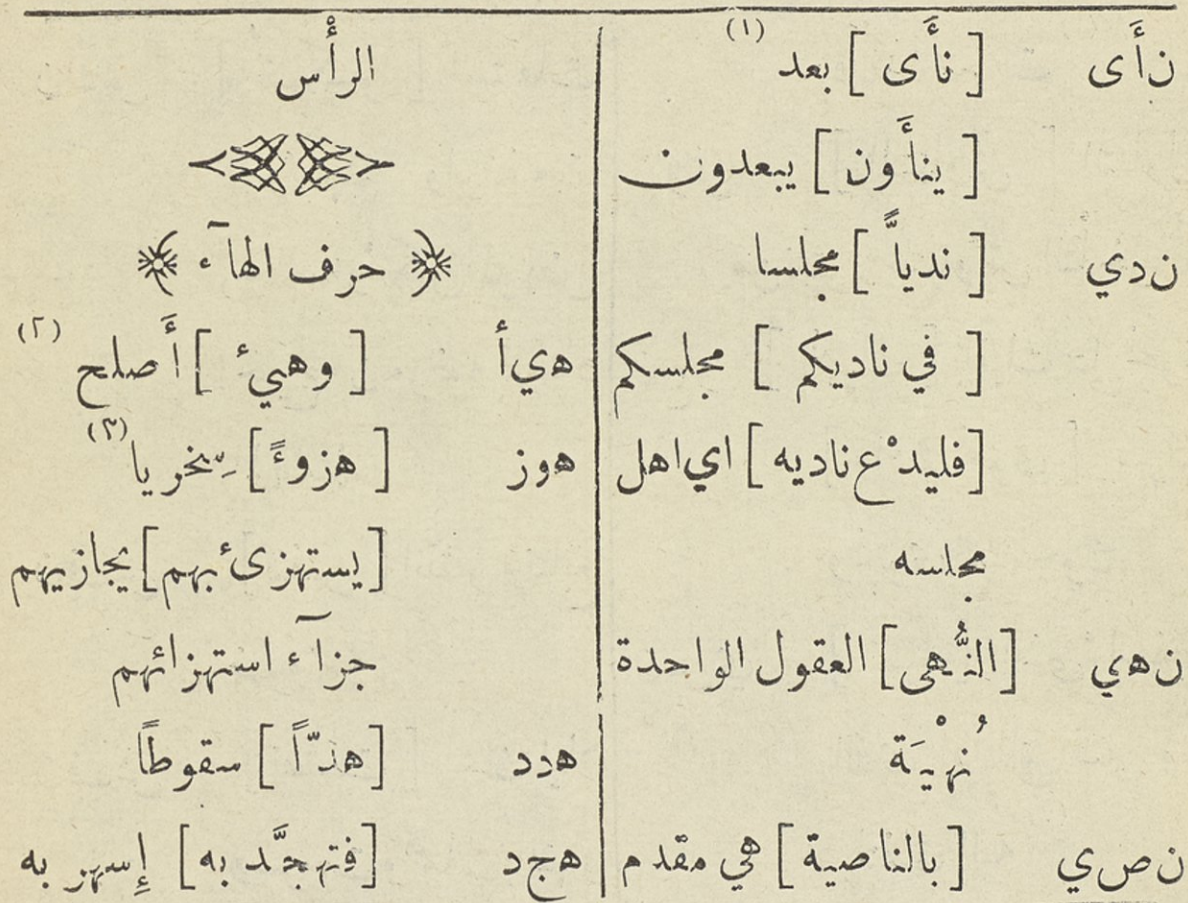 ن أَ ى [ نأَى ] بعد (١)
[ ينأَون ] يبعدون
ن د ي [ ندياًّ ] مجلسا
[ في ناديكم ] مجلسكم
[ فليدْع ناديه ] اي اهل
مجلسه
ن ه ي [ النُّهى ] العقول الواحدة
نُهْيَة
ن ص ي [ بالناصية ] هي مقدم
الرأْس
﴿ حرف الهآء ﴾
ه ي أ [ وهيئ ] أَصلح (٢)
ه و ز [ هزوءً ] سِخريا (٣)
[ يستهزئ بهم ] يجازيهم
جزآء استهزائهم
ه د د [ هدّاً ] سقوطاً
ه ج د [ فتهجَّد به ] إِسهر به